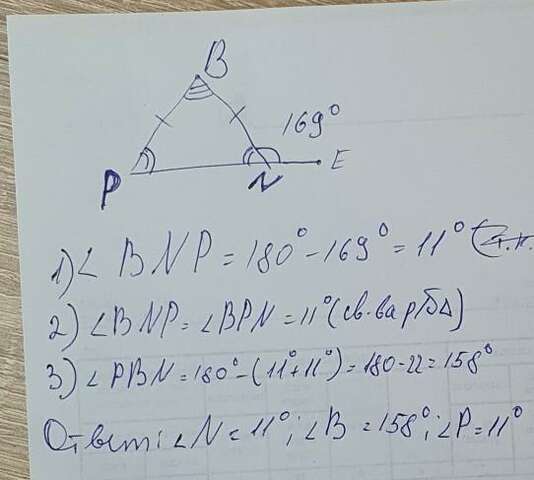 B
169°
P
N
E
1) ∠BNP = 180° - 169° = 11°
2) ∠BNP = ∠BPN = 11° (св-ва р/б∆)
3) ∠PBN = 180° - (11° + 11°) = 180 - 22 = 158°
Ответ: ∠N = 11°; ∠B = 158°; ∠P = 11°